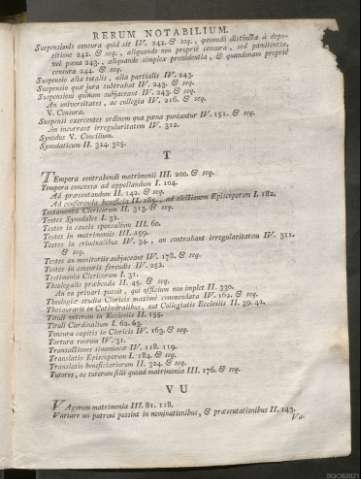 RERUM NOTABILIUM.
Suspensionis censura quid sit IV. 241. & seq., quomodo distincta à depo-
sitione 242. & seq., aliquando non propriè censura, sed poenitentia,
vel poena 243., aliquando simplex providentia, & quandonam propriè
censura 244. & seq.
Suspensio alia totalis, alia partialis IV. 243.
Suspensio quae jura subtrahat IV. 243. & seq.
Suspensioni quinam subjaceant IV. 243. & seq.
An universitates, ac collegia IV. 216. & seq.
V. Censura.
Suspensi exercentes ordinem qua poena puniantur IV. 151. & seq.
An incurrant irregularitatem IV. 312.
Synodus V. Concilium.
Synodaticum II. 324. 325.
T
TEmpora contrahendi matrimonii III. 200. & seq.
Tempora concessa ad appellandum I. 104.
Ad praesentandum II. 142. & seq.
Ad conferenda beneficia II. 285., ad electionem Episcoporum I. 182.
Testamenta Clericorum II. 313. & seq.
Testes Synodales I. 32.
Testes in causis sponsalium III. 60.
Testes in matrimoniis III. 259.
Testes in criminalibus IV. 34., an contrahant irregularitatem IV. 311.
& seq.
Testes an monitoriis subjaceant IV. 178. & seq.
Testes in censuris ferendis IV. 252.
Testimonia Clericorum I. 31.
Theologalis praebenda II. 45. & seq.
An ea privari possit, qui officium non implet II. 330.
Theologiae studia Clericis maximè commendata IV. 162. & seq.
Thesaurarii in Cathedralibus, aut Collegiatis Ecclesiis II. 39. 41.
Tituli veterum in Ecclesiis II. 155.
Tituli Cardinalium I. 62. 63.
Tonsura capitis in Clericis IV. 163. & seq.
Tortura reorum IV. 31.
Transactiones simoniacae IV. 118. 119.
Translatio Episcoporum I. 184. & seq.
Translatio beneficiariorum II. 324. & seq.
Tutores, ac tutorum filii quoad matrimonia III. 176. & seq.
V U
VAgorum matrimonia III. 81. 118.
Variare an patroni possint in nominationibus, & praesentationibus II. 143.
Va-